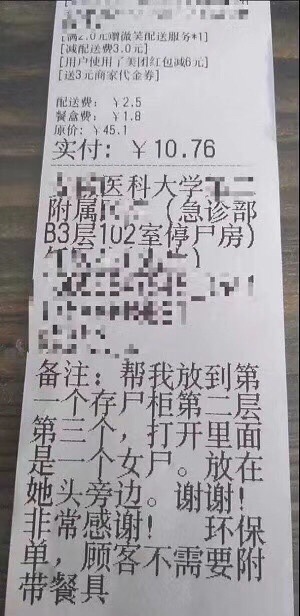 [满2.0元赠微笑配送服务*1]
[减配送费3.0元]
[用户使用了美团红包减6元]
[送3元商家代金券]
配送费: ¥2.5
餐盒费: ¥1.8
原价: ¥45.1
实付: ¥10.76
医科大学
附属 (急诊部
B3层102室停尸房)
备注: 帮我放到第
一个存尸柜第二层
第三个, 打开里面
是一个女尸。放在
她头旁边。谢谢!
非常感谢! 环保
单, 顾客不需要附
带餐具